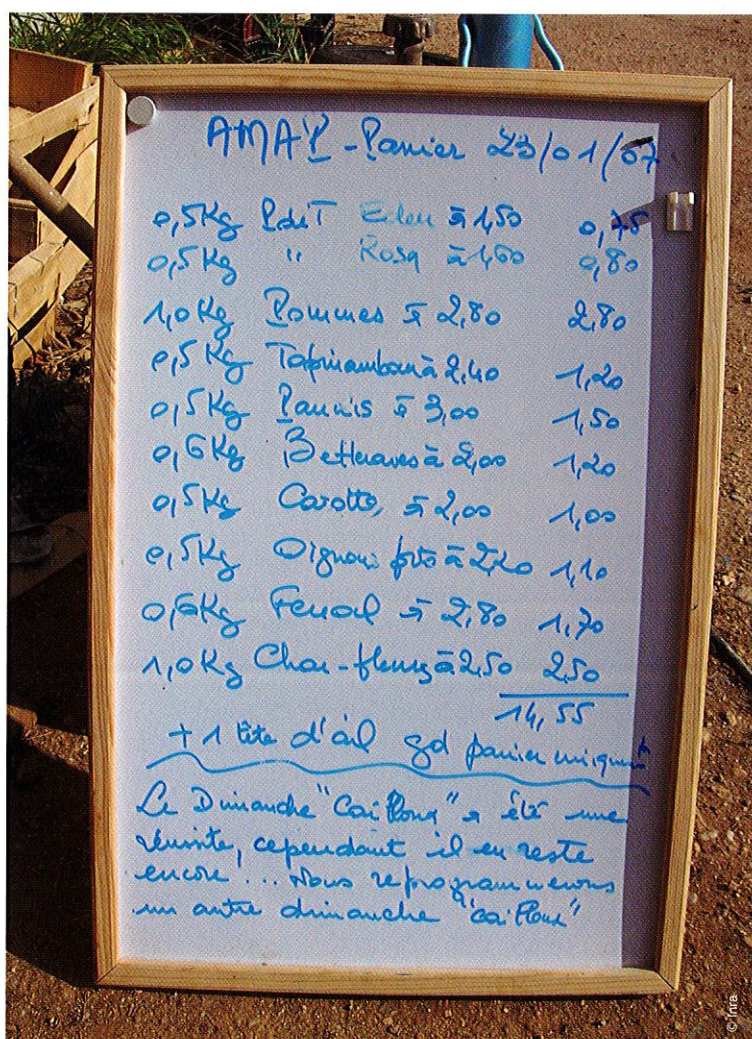 AMAP - Panier 23/01/07
0,5Kg P de T Eden à 1,50 0,75
0,5Kg " Rosa à 1,60 0,80
1,0Kg Pommes à 2,80 2,80
0,5Kg Topinambour à 2,40 1,20
0,5Kg Panais à 3,00 1,50
0,6Kg Betteraves à 2,00 1,20
0,5Kg Carottes à 2,00 1,00
0,5Kg Oignons à 2,20 1,10
0,6Kg Fenouil à 2,80 1,70
1,0Kg Chou-fleurs à 2,50 2,50
14,55
+ 1 tête d'ail gd panier uniquemt
Le Dimanche "Cailloux" a été une
réussite, cependant il en reste
encore ... Nous reprogrammerons
un autre dimanche "cailloux"
© Inra